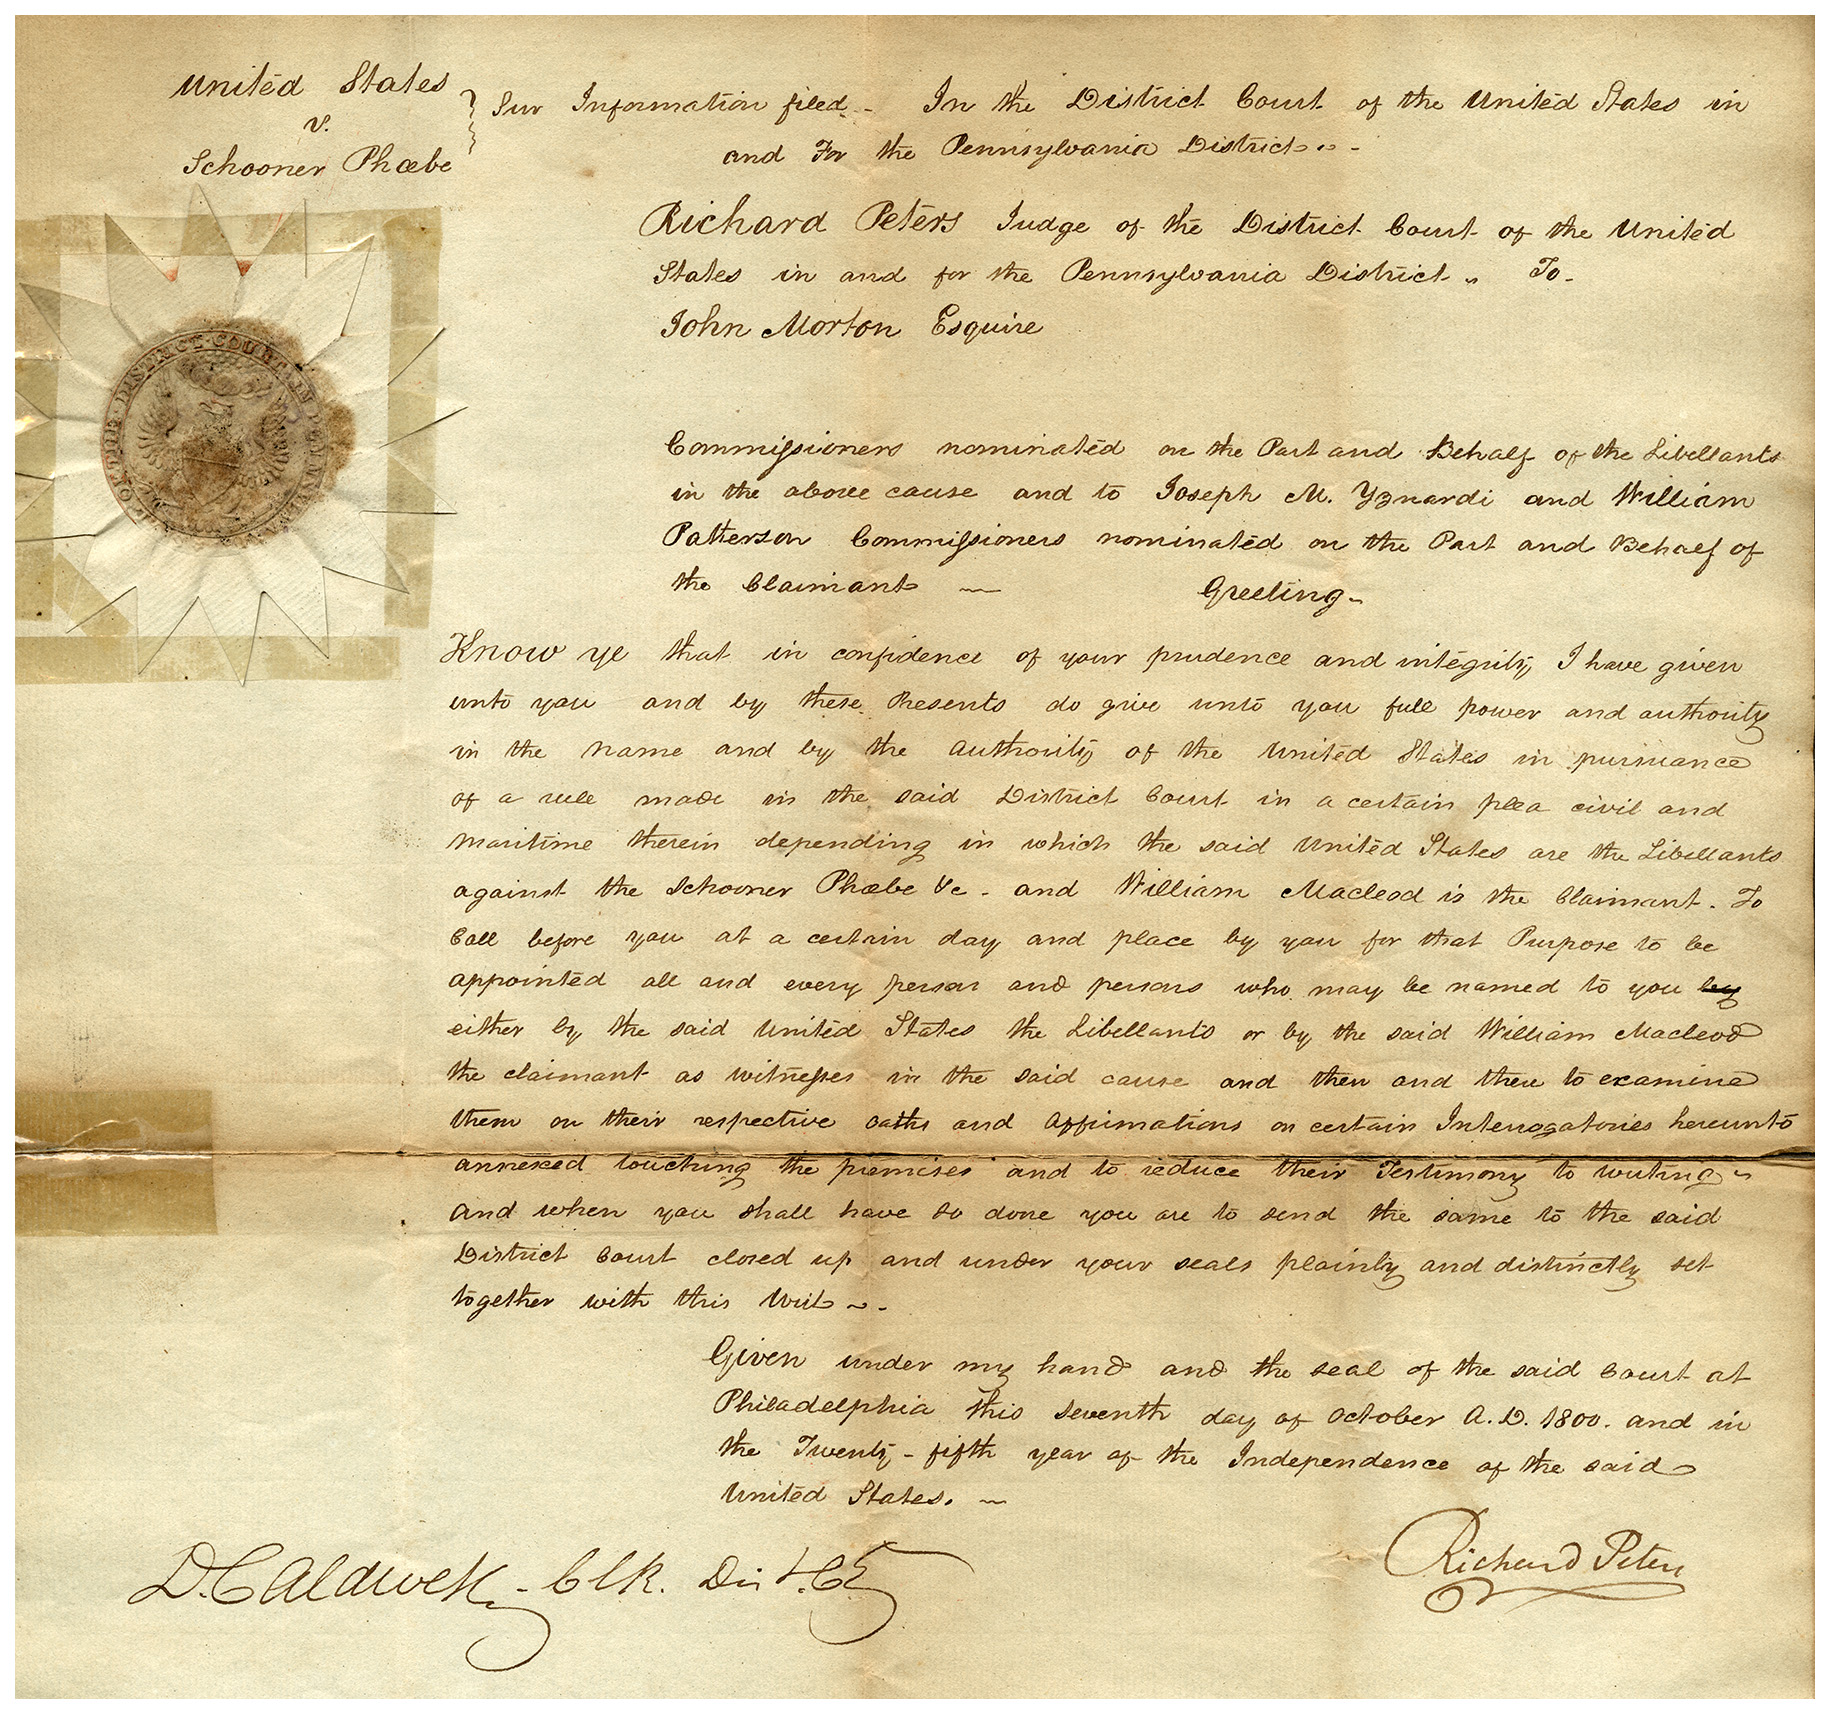 United States
v.
Schooner Phœbe
Sur Information filed - In the District Court of the United States in
and For the Pennsylvania District
Richard Peters Judge of the District Court of the United
States in and for the Pennsylvania District To
John Morton Esquire
DISTRICT COURT
Commissioners nominated on the Part and Behalf of the Libellants
in the above cause and to Joseph M. Yznardi and William
Patterson Commissioners nominated on the Part and Behalf of
the Claimant — Greeting
Know ye that in confidence of your prudence and integrity I have given
unto you and by these Presents do give unto you full power and authority
in the name and by the authority of the United States in pursuance
of a rule made in the said District Court in a certain plea civil and
maritime therein depending in which the said United States are the Libellants
against the Schooner Phœbe &c - and William Macleod is the Claimant. To
Call before you at a certain day and place by you for that Purpose to be
appointed all and every person and persons who may be named to you by
either by the said United States the Libellants or by the said William Macleod
the claimant as witnesses in the said cause and then and there to examine
them on their respective oaths and affirmations on certain Interrogatories hereunto
annexed touching the premises and to reduce their Testimony to writing
and when you shall have so done you are to send the same to the said
District Court closed up and under your seals plainly and distinctly set
together with this Writ
Given under my hand and the seal of the said Court at
Philadelphia this seventh day of October A.D. 1800. and in
the Twenty-fifth year of the Independence of the said
United States.
D. Caldwell - Clk. Dist. Ct
Richard Peters